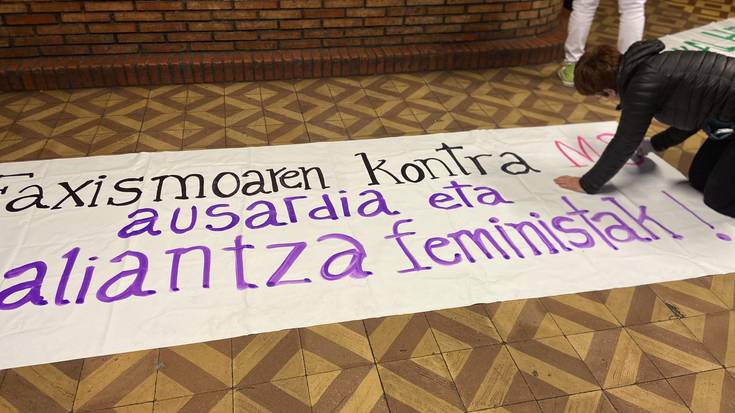 Faxismoaren kontra
ausardia eta
aliantza feministak!!